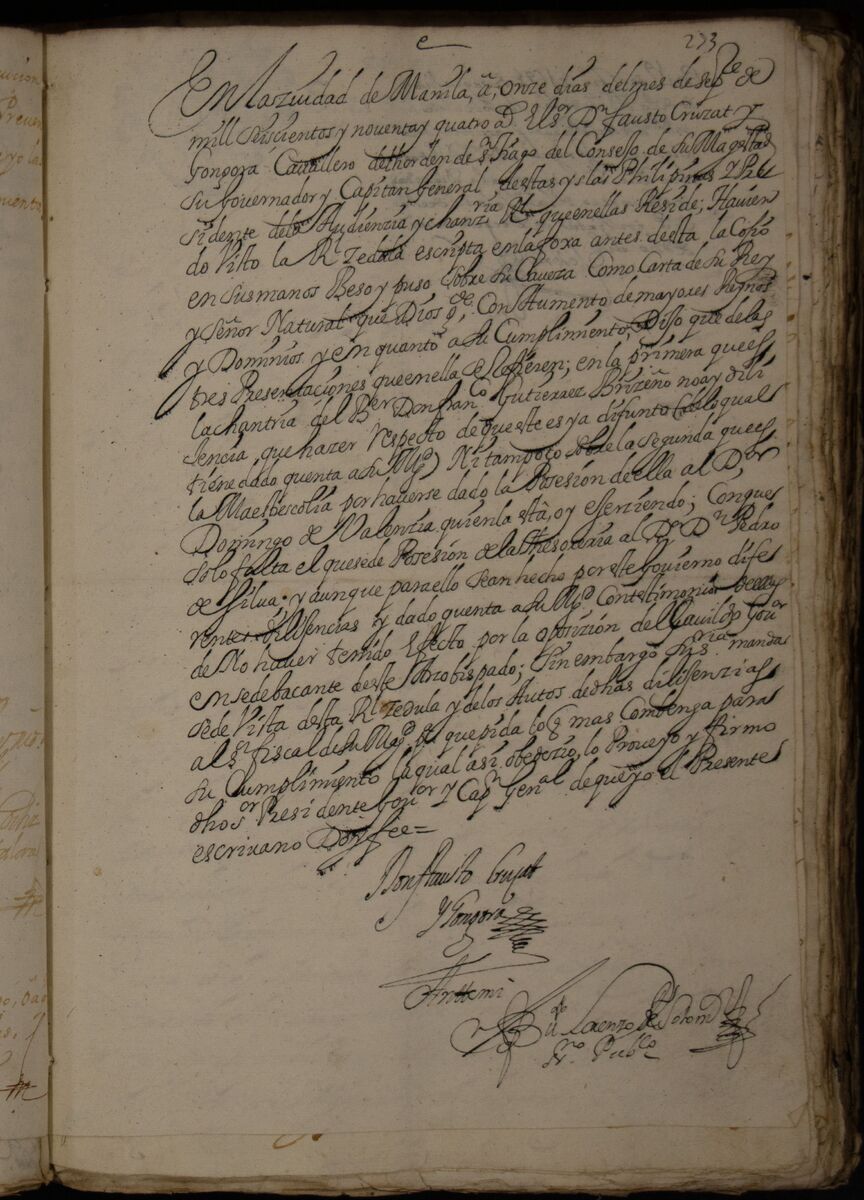 233
En la ziudad de Manila, a, onze dias del mes de sepe de
mill seiscientos y noventa y quatro as. El sr. Dn fausto Cruzat y
Gongora Cavallero del horden de s.tiago del Consejo de su Magestad
su Governador y Capitan General destas yslas Philipinas y Pre
sidente dela Audienzia y chanzria. Rl. que en ellas Reside; Havien
do Visto la Rl Zedula escripta en la foxa antes desta la Cojio
en sus manos Beso y puso sobre su Caveza Como Carta de su Rey
y Señor Natural que Dios gde. Con Aumento de mayores Reynos
y Dominios y en quanto a su Cumplimiento, Dijo que delas
tres Presentaciones que en ella se Refieren; en la primera que es
la chantria del Ber Don franco. Gutierrez Brizeño no ay dili
jencia, que hazer respecto de que este es ya difunto de lo qual
tiene dado quenta a su Magd Ni tampoco sobre la segunda que es
la Maestrescolia por haverse dado la Posesion de ella al Dor
Domingo de Valenzia quien la està, oy exerziendo; Conque
solo falta el que se de Posesion de la thesoreria al Dor Dn Pedro
de silva. y aunque para ello se an hecho por este Govierno dife
rentes dilijencias y dado quenta a su Magd. Con testimonio dellas
de No haver tenido Efecto por la oposizion del Cavildo Govor
en sede bacante deste Arzobispado; sin embargo su sria. manda
se de Vista desta Rl. Zedula y delos Autos de dhas dilijenzias
al sr. fiscal de su Magd. pa. que pida lo q mas Combenga para
su Cumplimiento la qual asi. obedezio, lo Proveyo y firmo
dho sor Presidente Govor y Capn Genal de que yo el Presente
escrivano Doy fee=
Don fausto Cruzat
y Gongora
Antte mi
Lorenzo
sno. Pubco